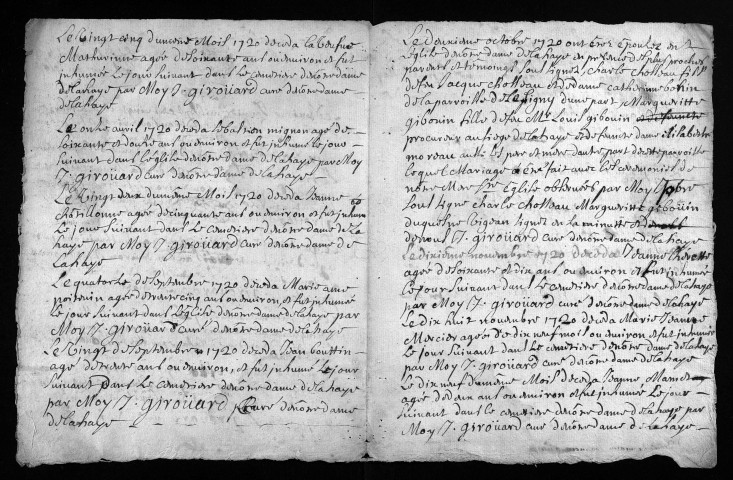 Le Vingt cinq dumesme Mois 1720 deceda la veufue
Mathurinne agée desoixante ans ou environ et fut
inhumée Le jour suivant dans Le cemetiere denôtre dame
delahaye par Moy J. giroüard curé denôtre dame
delahaye
Le onze avril 1720 deceda sebastien mignon agé de
soixante et douze ans ou environ et fut inhumé Le jour
suivant dans L'eglise denôtre dame delahaye par Moy
J. girouard curé denôtre dame delahaye
Le Vingt deux dumême Mois 1720 deceda Jeanne
agée decinquante ans ou environ et fut inhumée
Le jour suivant dans Le cemetiere denôtre dame dela
haye par Moy J. girouard curé denôtre dame de
Lahaye
Le quatorze deseptembre 1720 deceda Marie anne
poitevin agée detrente cinq ans ou environ et fut inhumée
Le jour suivant dans L'Eglise denôtre dame delahaye par
Moy J. girouard curé denôtre dame delahaye
Le Vingt deseptembre 1720 deceda Jean bouttin
agé detrente ans ou environ, et fut inhumé Le jour
suivant dans Le cemetiere denôtre dame delahaye
par Moy J. girouard curé denôtre dame
delahaye
Le Deuxieme octobre 1720 ont étez épousez en L
Eglise denôtre dame delahaye en presence des plus proches
parents et temoings soussignez charle Chotteau fils
defeu jacque chotteau et dedame catherinne
delaparroisse de d'une part Margueritte
gibouin fille de feu Mr Louis gibouin
procureur ausiege delahaye et de dame elisabeth
moreau ses pere et mere dautre part decette parroisse
Lequel Mariage a été fait avec les ceremonies de
notre Mere Ste Eglise observées par Moy
soussigne charle chotteau Margueritte gibouin
duquesne vigean signez en la minutte
denous J. girouard curé denôtre dame delahaye
Le dixieme novembre 1720 deceda Jeanne
agée desoixante et dix ans ou environ et fut inhumée
Le jour suivant dans Le cemetiere denôtre dame delahaye
par Moy J. girouard curé denôtre dame delahaye
Le dix huit novembre 1720 deceda Marie Jeanne
Mercier agée de dix neuf mois ou environ et fut inhumée
Le jour suivant dans Le cemetiere denôtre dame delahaye
par Moy J. girouard curé denôtre dame delahaye
Le dix neuf dumême Mois deceda Jeanne
agée dedeux ans ou environ et fut inhumée Le jour
suivant dans le cemetiere denôtre dame delahaye par
Moy J. girouard curé denôtre dame delahaye